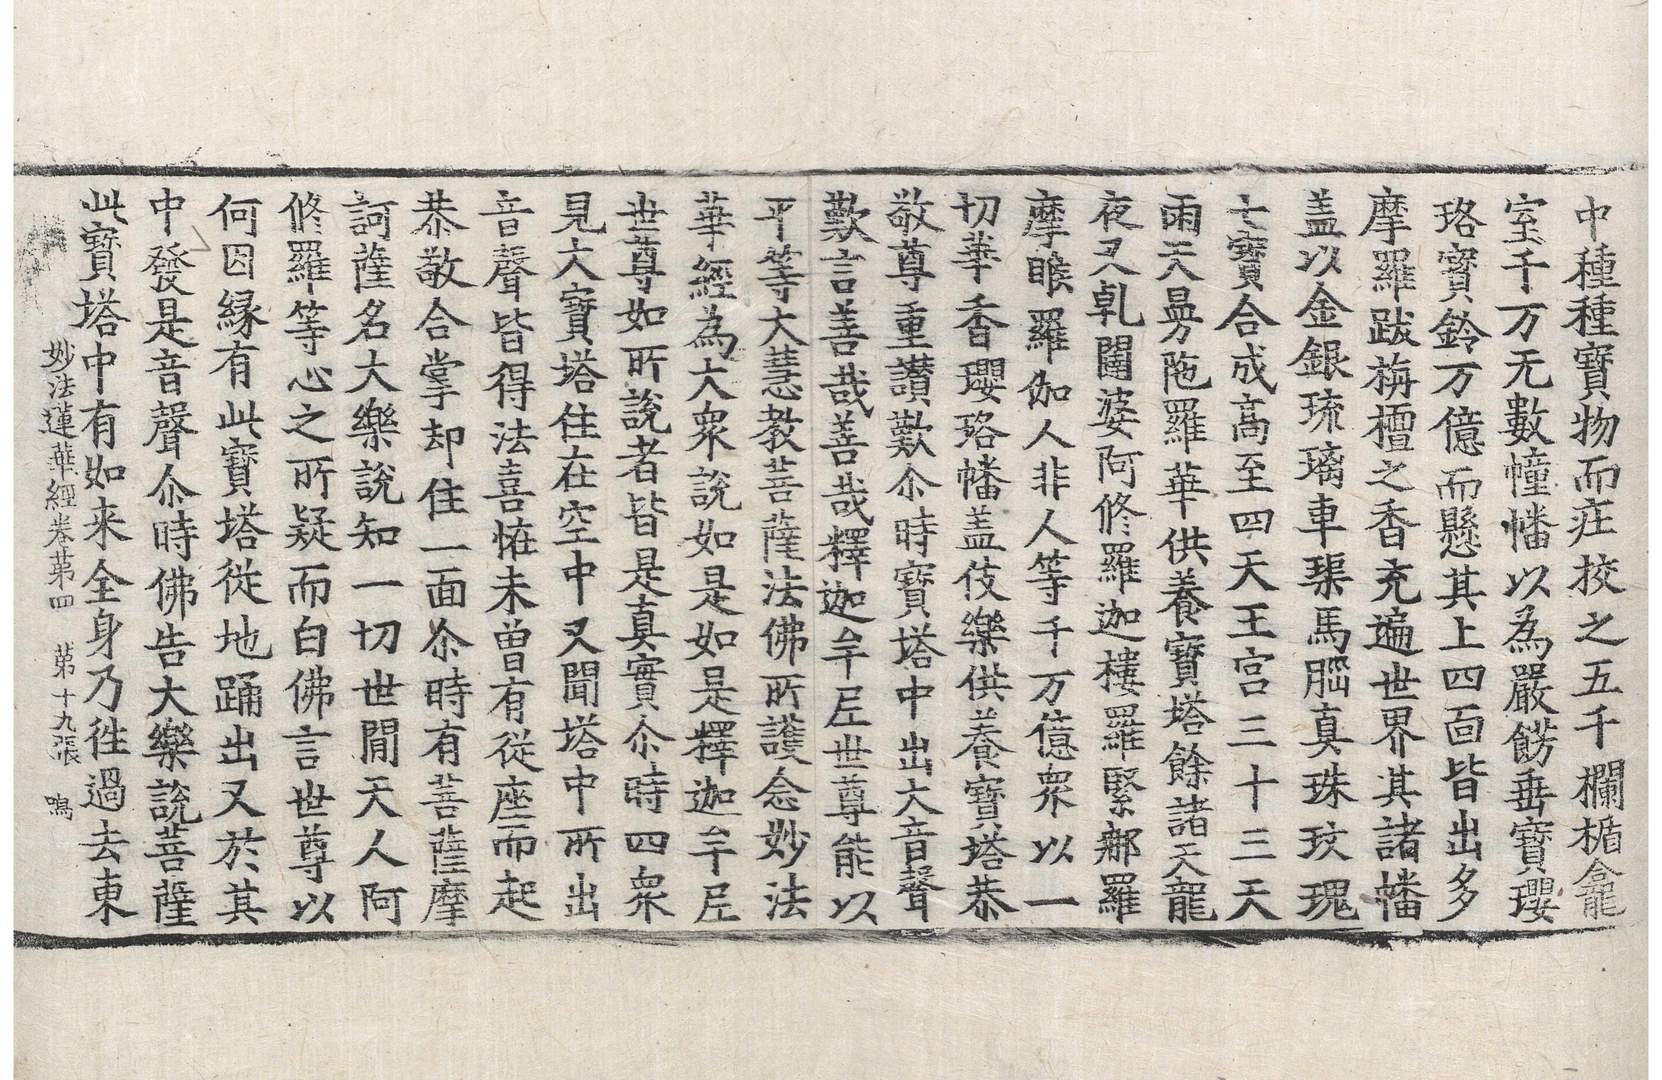 中種種寶物而庄挍之五千欄楯龕
室千万无數幢幡以為嚴餝垂寶瓔
珞寳鈴万億而懸其上四面皆出多
摩羅跋栴檀之香充遍世界其諸幡
盖以金銀琉璃車𤦲馬𦛁真珠玫瑰
七寶合成髙至四天王宮三十三天
雨天曼陁羅華供養寶塔餘諸天龍
夜叉乹闥婆阿修羅迦樓羅緊那羅
摩睺羅伽人非人等千万億衆以一
切華香瓔珞幡盖伎樂供養寶塔恭
敬尊重讃歎尒時寶塔中出大音聲
歎言善哉善哉釋迦牟尼世尊能以
平等大慧教菩薩法佛所護念妙法
華經為大衆說如是如是釋迦牟尼
世尊如所說者皆是真實尒時四衆
見大寶塔住在空中又聞塔中所出
音聲皆得法喜恠未曽有從座而起
恭敬合掌却住一面尒時有菩薩摩
訶薩名大樂說知一切世閒天人阿
修羅等心之所疑而白佛言世尊以
何因縁有此寶塔從地踊出又於其
中發是音聲尒時佛告大樂說菩薩
此寶塔中有如来全身乃徃過去東
妙法蓮華經卷苐四 苐十九張 鳴